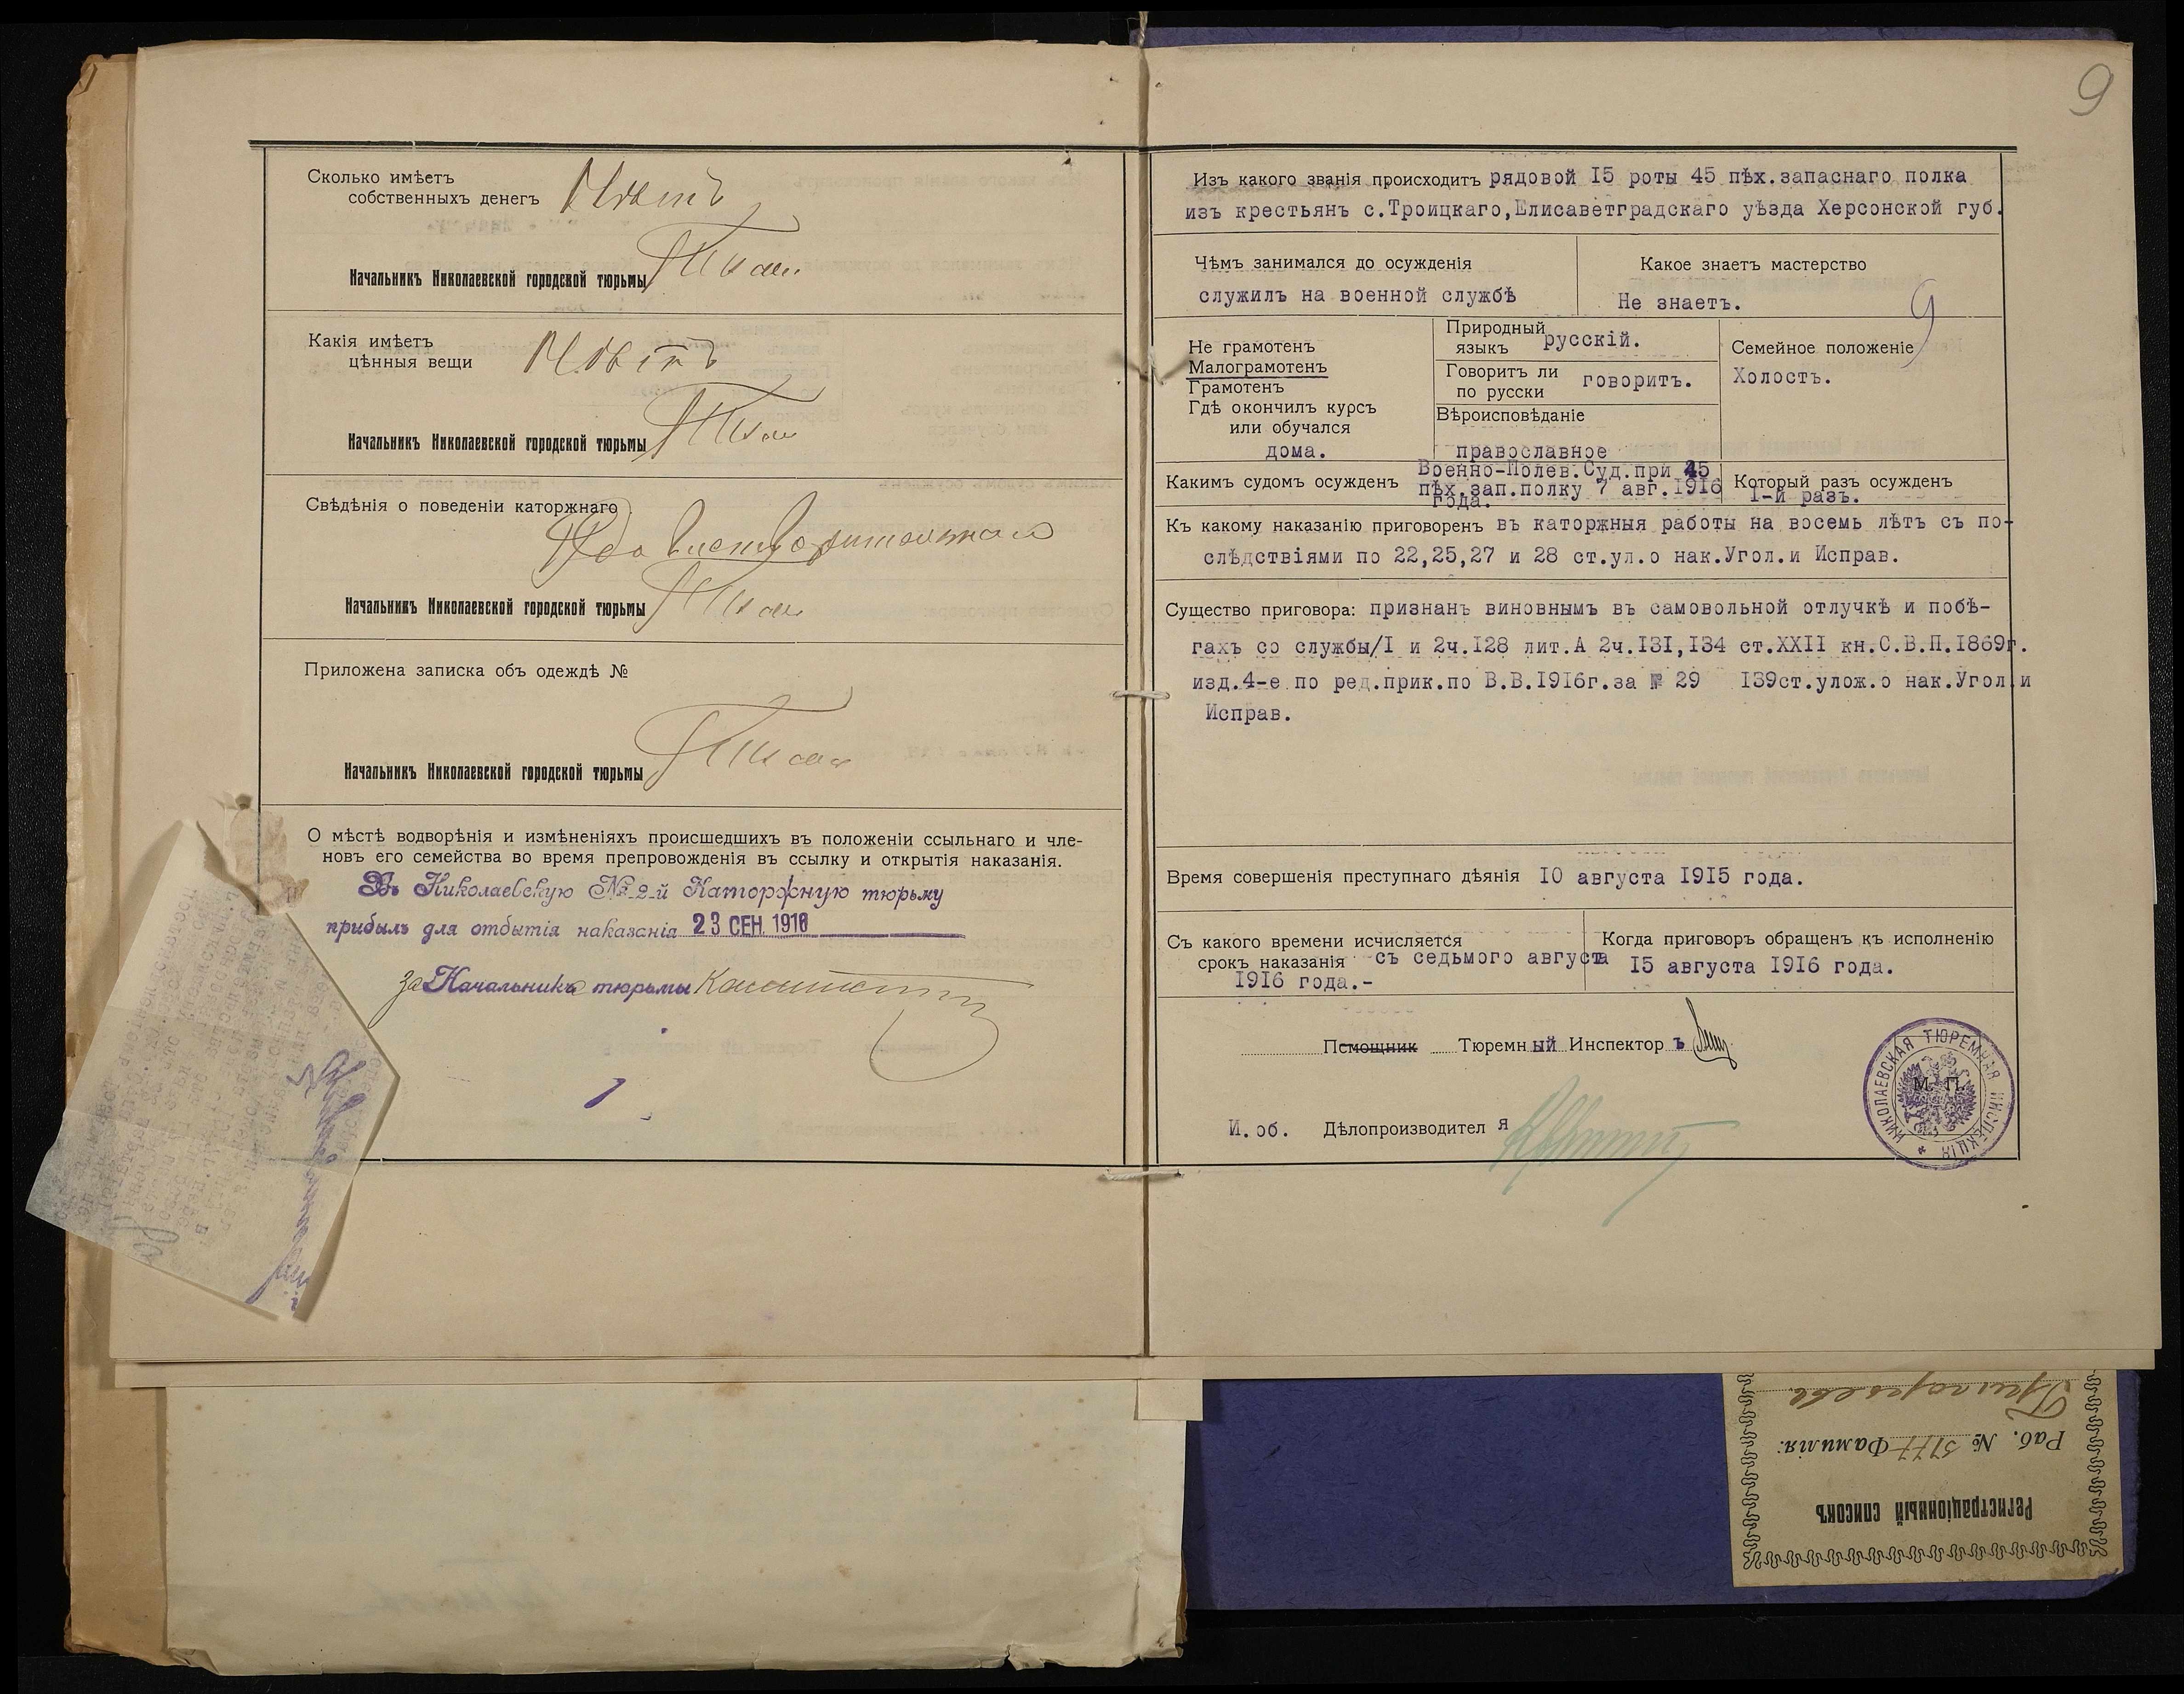 Сколько имѣетъ
собственныхъ денегъ Нѣтъ
Начальникъ Николаевской городской тюрьмы
Какія имѣетъ
цѣнныя вещи Нѣтъ
Начальникъ Николаевской городской тюрьмы
Свѣдѣнія о поведеніи каторжнаго
Удовлетворительное
Начальникъ Николаевской городской тюрьмы
Приложена записка объ одеждѣ №
Начальникъ Николаевской городской тюрьмы
О мѣстѣ водворѣнія и измѣненіяхъ происшедшихъ въ положеніи ссыльнаго и чле-
новъ его семейства во время препровожденія въ ссылку и открытія наказанія.
Въ Николаевскую № 2-й Каторжную тюрьму
прибылъ для отбытія наказанія 23 СЕН. 1916
За Начальника тюрьмы
9
Изъ какого званія происходитъ рядовой I5 роты 45 пѣх.запаснаго полка
изъ крестьянъ с.Троицкаго,Елисаветградскаго уѣзда Херсонской губ.
Чѣмъ занимался до осужденія
служилъ на военной службѣ
Какое знаетъ мастерство
Не знаетъ.
9
Не грамотенъ
Малограмотенъ
Грамотенъ
Гдѣ окончилъ курсъ
или обучался
дома.
Природный
языкъ русскій.
Говоритъ ли
по русски говоритъ.
Вѣроисповѣданіе
православное
Семейное положеніе
Холостъ.
Какимъ судомъ осужденъ Военно-Полев.Суд.при 45
пѣх.зап.полку 7 авг.I9I6
года.
Который разъ осужденъ
I-й разъ.
Къ какому наказанію приговоренъ въ каторжныя работы на восемь лѣтъ съ по-
слѣдствіями по 22,25,27 и 28 ст.ул.о нак.Угол.и Исправ.
Существо приговора: признанъ виновнымъ въ самовольной отлучкѣ и побѣ-
гахъ со службы/I и 2ч.I28 лит.А 2ч.I3I,I34 ст.XXII кн.С.В.П.I869г.
изд.4-е по ред.прик.по В.В.I9I6г.за № 29 I39ст.улож.о нак.Угол.и
Исправ.
Время совершенія преступнаго дѣянія I0 августа I9I5 года.
Съ какого времени исчисляется
срокъ наказанія съ седьмого августа
I9I6 года.-
Когда приговоръ обращенъ къ исполненію
I5 августа I9I6 года.
Помощник Тюремный Инспекторъ
М. П.
НИКОЛАЕВСКАЯ ТЮРЕМНАЯ ИНСПЕКЦІЯ
И. об. Дѣлопроизводителя
Регистраціонный списокъ
Раб. № 5177 Фамилія:
Григорьевъ